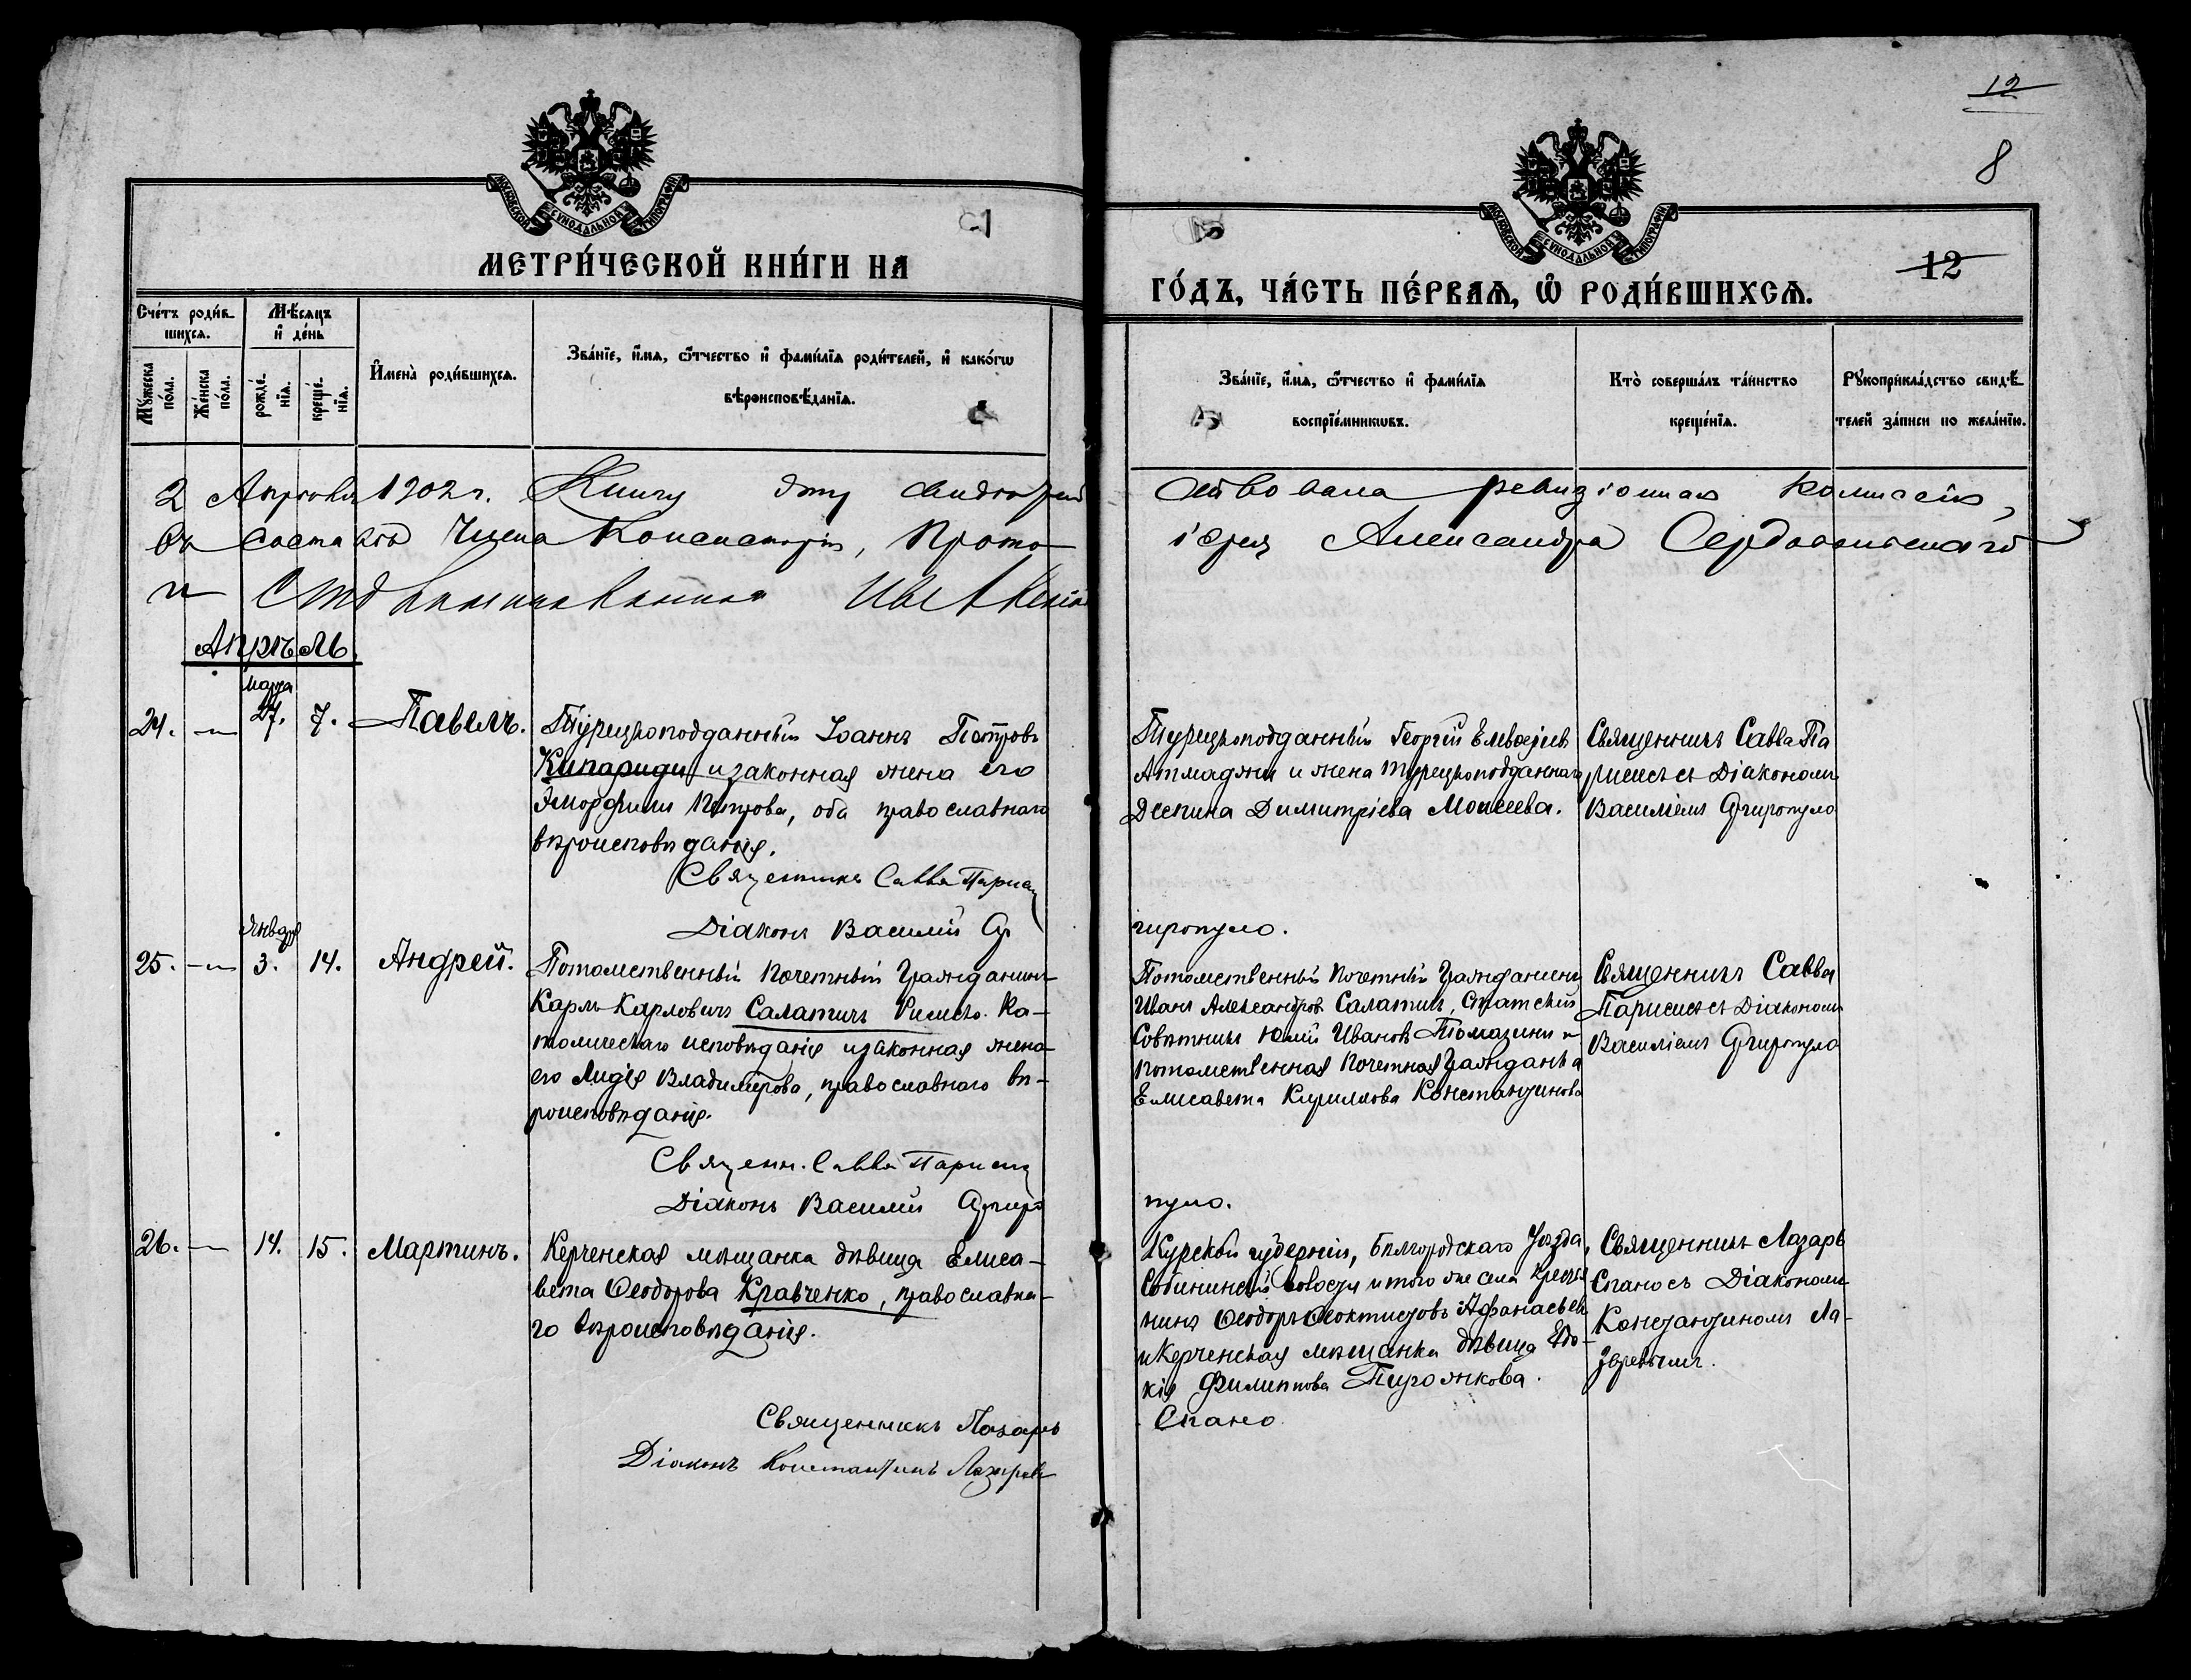 12
8
МОСКОВСКОЙ СѴНОДАЛЬНОЙ ТИПОГРАФІИ
МЕТРИ́ЧЕСКОЙ КНИ́ГИ НА
МОСКОВСКОЙ СѴНОДАЛЬНОЙ ТИПОГРАФІИ
ГО́ДЪ, ЧА́СТЬ ПЕ́РВАѦ, Ѿ РОДИ́ВШИХСѦ.
12
Сче́тъ роди́в-
шихсѧ.
Мꙋ́жеска по́ла.
Же́нска по́ла.
Мѣ́сѧцъ и҆ де́нь
рожде́-нїѧ.
креще́-нїѧ.
И҆мена̀ роди́вшихсѧ.
Зва́нїе, и҆́мѧ, ѻ҆́тчество и҆ фами́лїѧ роди́телей, и҆ како́гѡ
вѣроисповѣ́данїѧ.
Зва́нїе, и҆́мѧ, ѻ҆́тчество и҆ фами́лїѧ
воспрїе́мникѡвъ.
Кто̀ соверша́лъ та́инство
креще́нїѧ.
Рꙋкоприкла́дство свидѣ́-
телей за́писи по жела́нїю.
2 Апрѣля 1902 г. Книгу эту свидѣтель
ствовала ревизіонная Комиссія,
въ составѣ Члена Консисторіи, Прото-
іерея Александра Сердобольскаго
и
Апрѣль
24. — Марта 27. 7. Павелъ.
Турецкоподданный Іоаннъ Петровъ
Кипариди и законная жена его
Эморфили Петрова, оба православнаго
вѣроисповѣданія.
Священникъ Савва Париси
Діаконъ Василій Ар
гиропуло.
Турецкоподданный Георгій Елевѳеріевъ
Атмаджи и жена турецкоподданнаго
Деспина Димитріева Моисеева.
Священникъ Савва Па
рисисъ съ Діакономъ
Василіемъ Аргиропуло
25. — Января 3. 14. Андрей.
Потомственный Почетный Гражданинъ
Карлъ Карловичъ Салатичъ Римско-Ка-
толическаго исповѣданія и законная жена
его Лидія Владимірова, православнаго вѣ-
роисповѣданія.
Священн. Савва Париси
Діаконъ Василій Аргиро
пуло.
Потомственный Почетный Гражданинъ
Иванъ Александровъ Салатичъ, Статскій
Совѣтникъ Юлій Ивановъ Томазини и
потомственная Почетная Гражданка
Елисавета Кириллова Константинова
Священникъ Савва
Парисисъ съ Діакономъ
Василіемъ Аргиропуло
26. — 14. 15. Мартинъ.
Керченская мѣщанка дѣвица Елиса-
вета Ѳеодорова Кравченко, православна-
го вѣроисповѣданія.
Священникъ Лазарь
Спано
Діаконъ Константинъ Лазаревъ
Курской губерніи, Бѣлгородскаго Уѣзда,
Собининской волости и того же села Крестья
нинъ Ѳеодоръ Ѳеоктистовъ Афанасьевъ
и Керченская мѣщанка дѣвица Евдо-
кія Филиппова Пирожкова.
Священникъ Лазарь
Спано съ Діакономъ
Константиномъ Ла-
заревымъ.